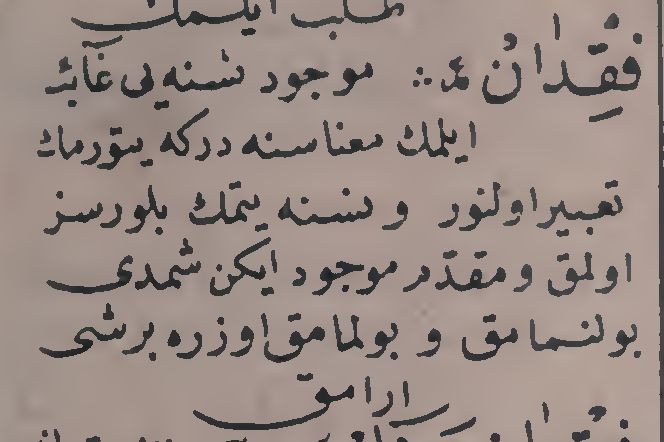 طلب ايلمك
فِقْدَانْ عـ : موجود نسنه يى غائب
ايلمك معناسنه دركه يتورمك
تعبير اولنور و نسنه يتمك بلورسز
اولمق و مقدّم موجود ايكن شمدى
بولنمامق و بولمامق اوزره برشى
ارامق